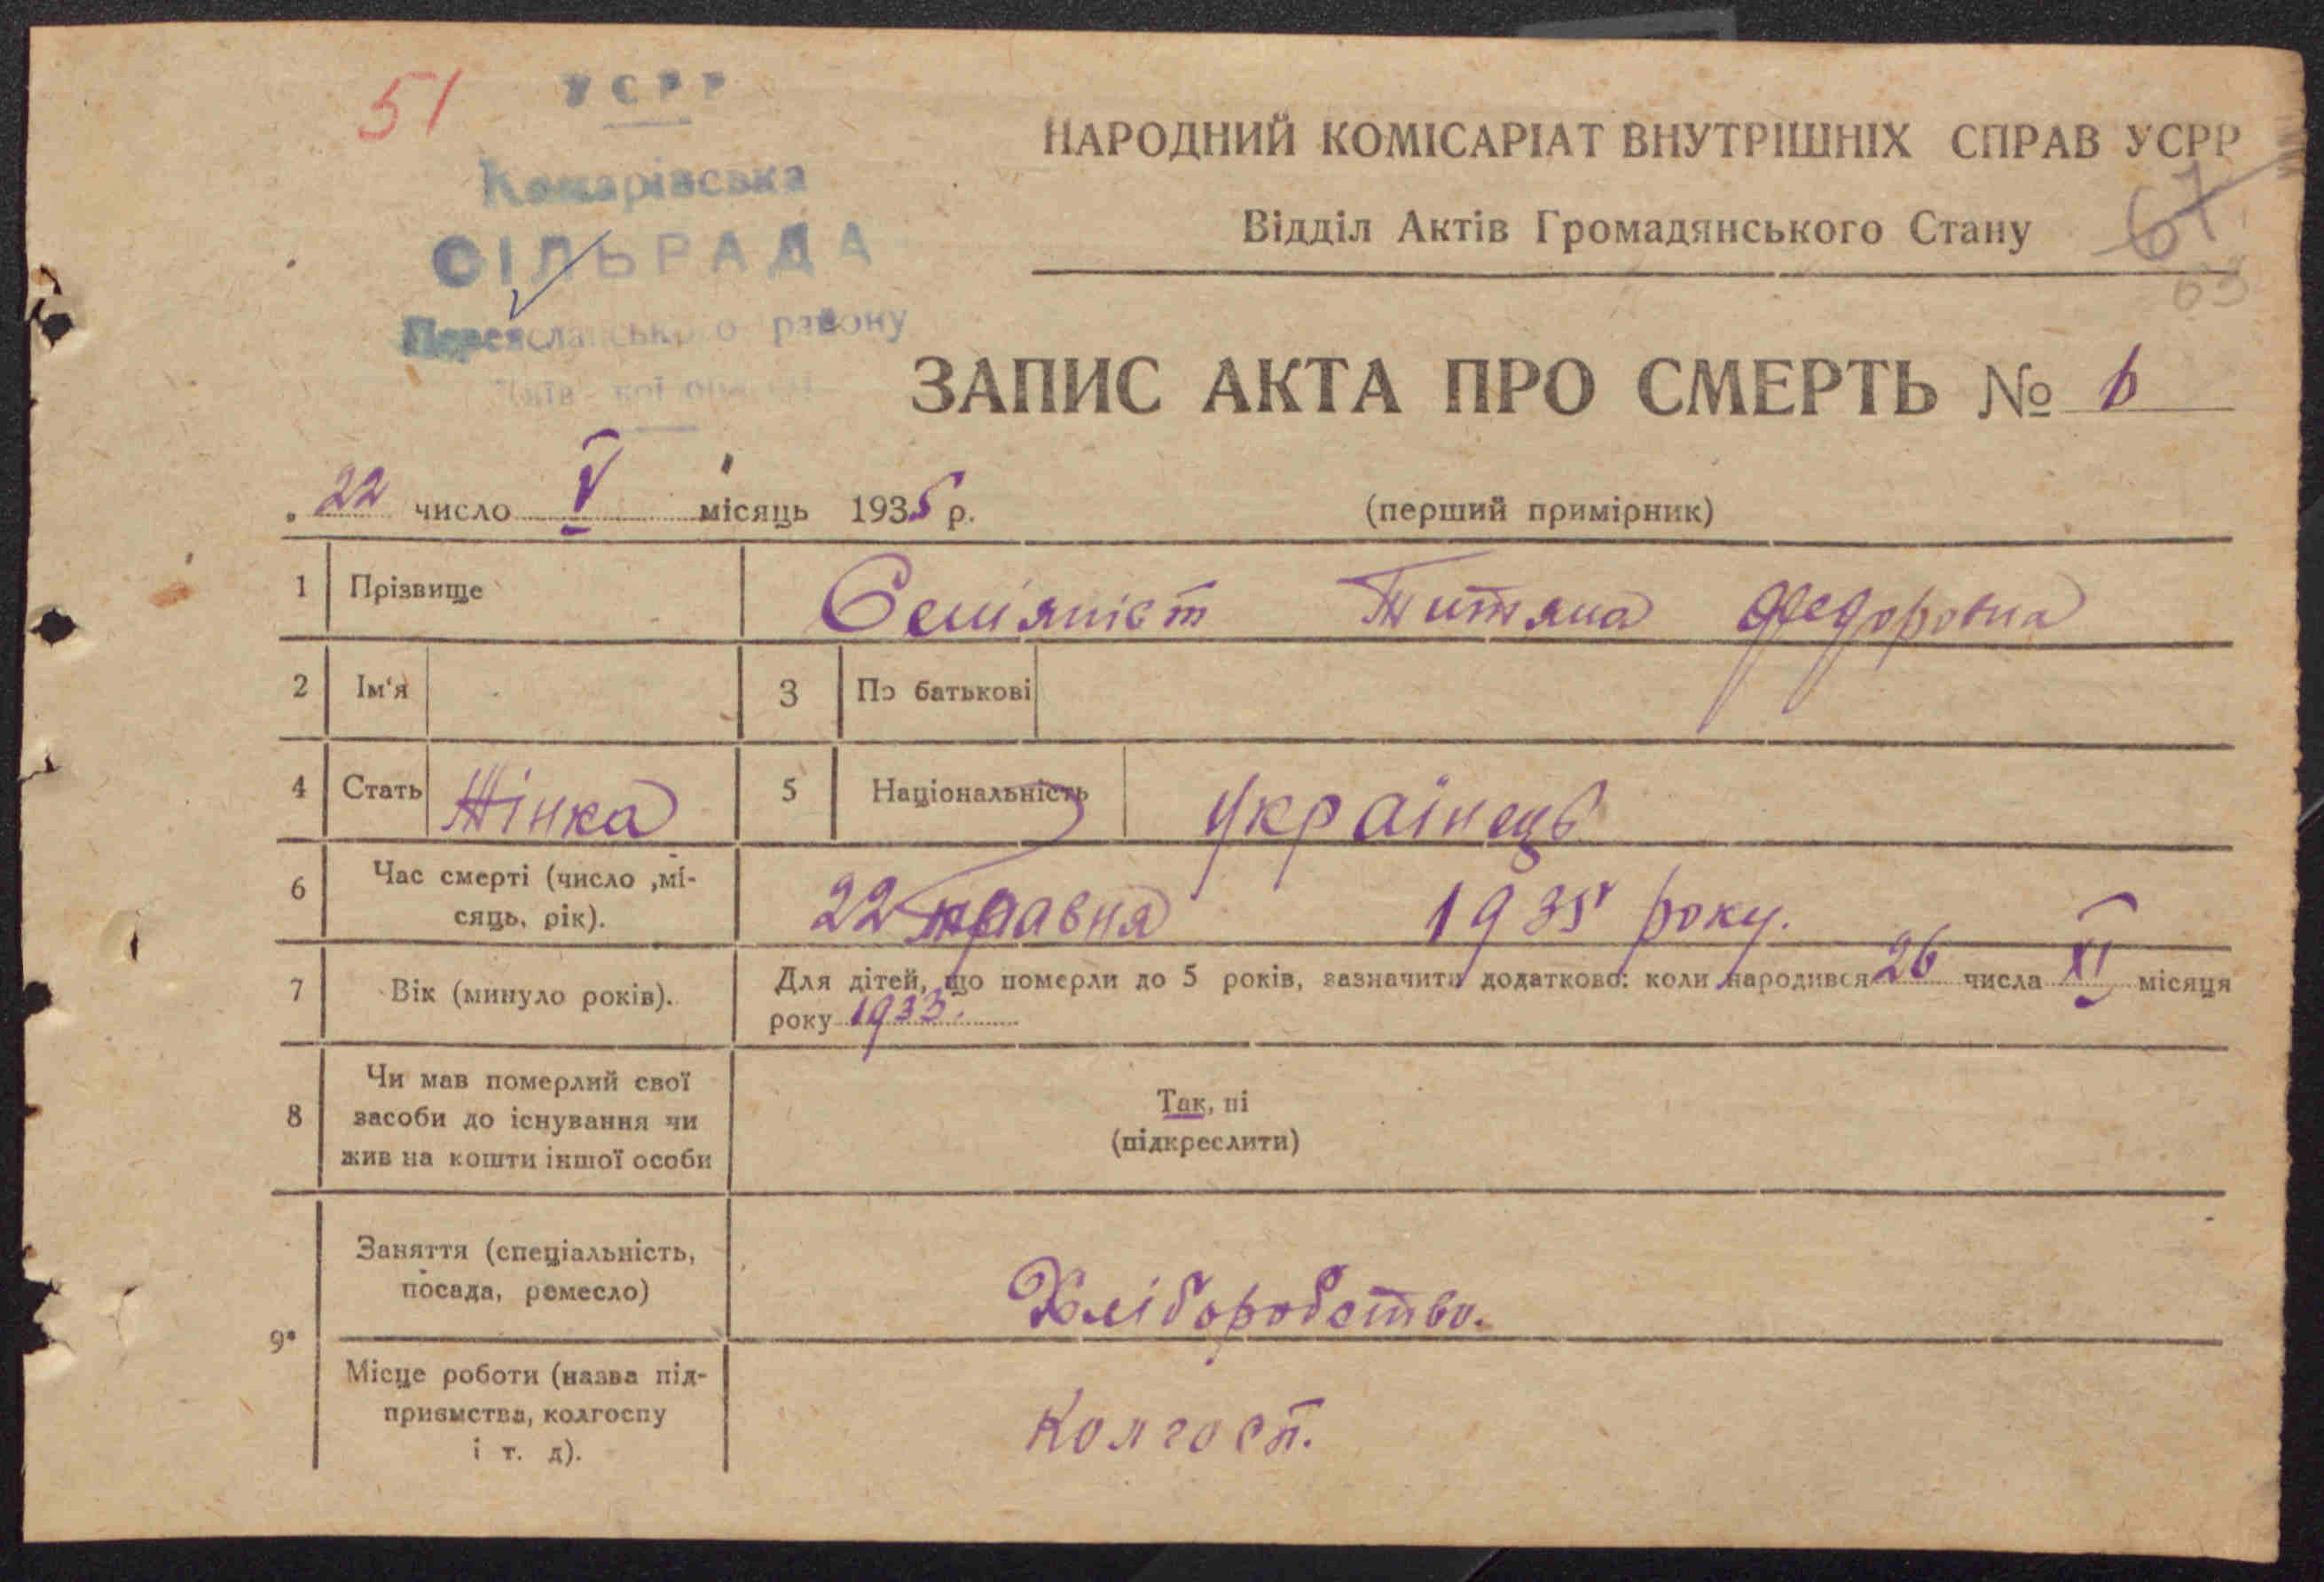 51
УСРР
НАРОДНИЙ КОМІСАРІАТ ВНУТРІШНІХ СПРАВ УСРР
СІЛЬРАДА
Відділ Актів Громадянського Стану 67
63
Переяславського району
ЗАПИС АКТА ПРО СМЕРТЬ № 6
22 число V місяць 1935 р. (перший примірник)
1 Прізвище Семяніст Титяна Федоровна
2 Ім'я 3 По батькові
4 Стать Жінка 5 Національність Українець
6 Час смерті (число ,мі-
сяць, рік). 22 травня 1935 року.
7 Вік (минуло років). Для дітей, що померли до 5 років, зазначити додатково: коли народився 26 числа XI місяця
року 1933.
8 Чи мав померлий свої
засоби до існування чи
жив на кошти іншої особи
Так, ні
(підкреслити)
9
Заняття (спеціальність,
посада, ремесло)
Хліборобство.
Місце роботи (назва під-
приємства, колгоспу
і т. д).
Колгосп.